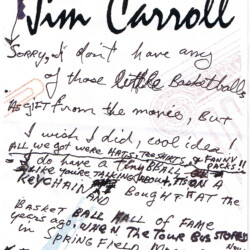 Jim Carroll
SORRY, I don't have any
of those little Basketballs
AS GIFT from the movie, But
I wish I did, cool idea!
ALL WE GOT WERE HATS, TEE SHIRTS, & FANNY PACKS!!
I do have a tiny BALL
LIKE YOU'RE TALKING ABOUT, IT'S ON A
KEYCHAIN AND Bought AT the
BASKET BALL HALL OF FAME
years ago, WHEN THE TOUR BUS STOPPED
IN SPRINGFIELD